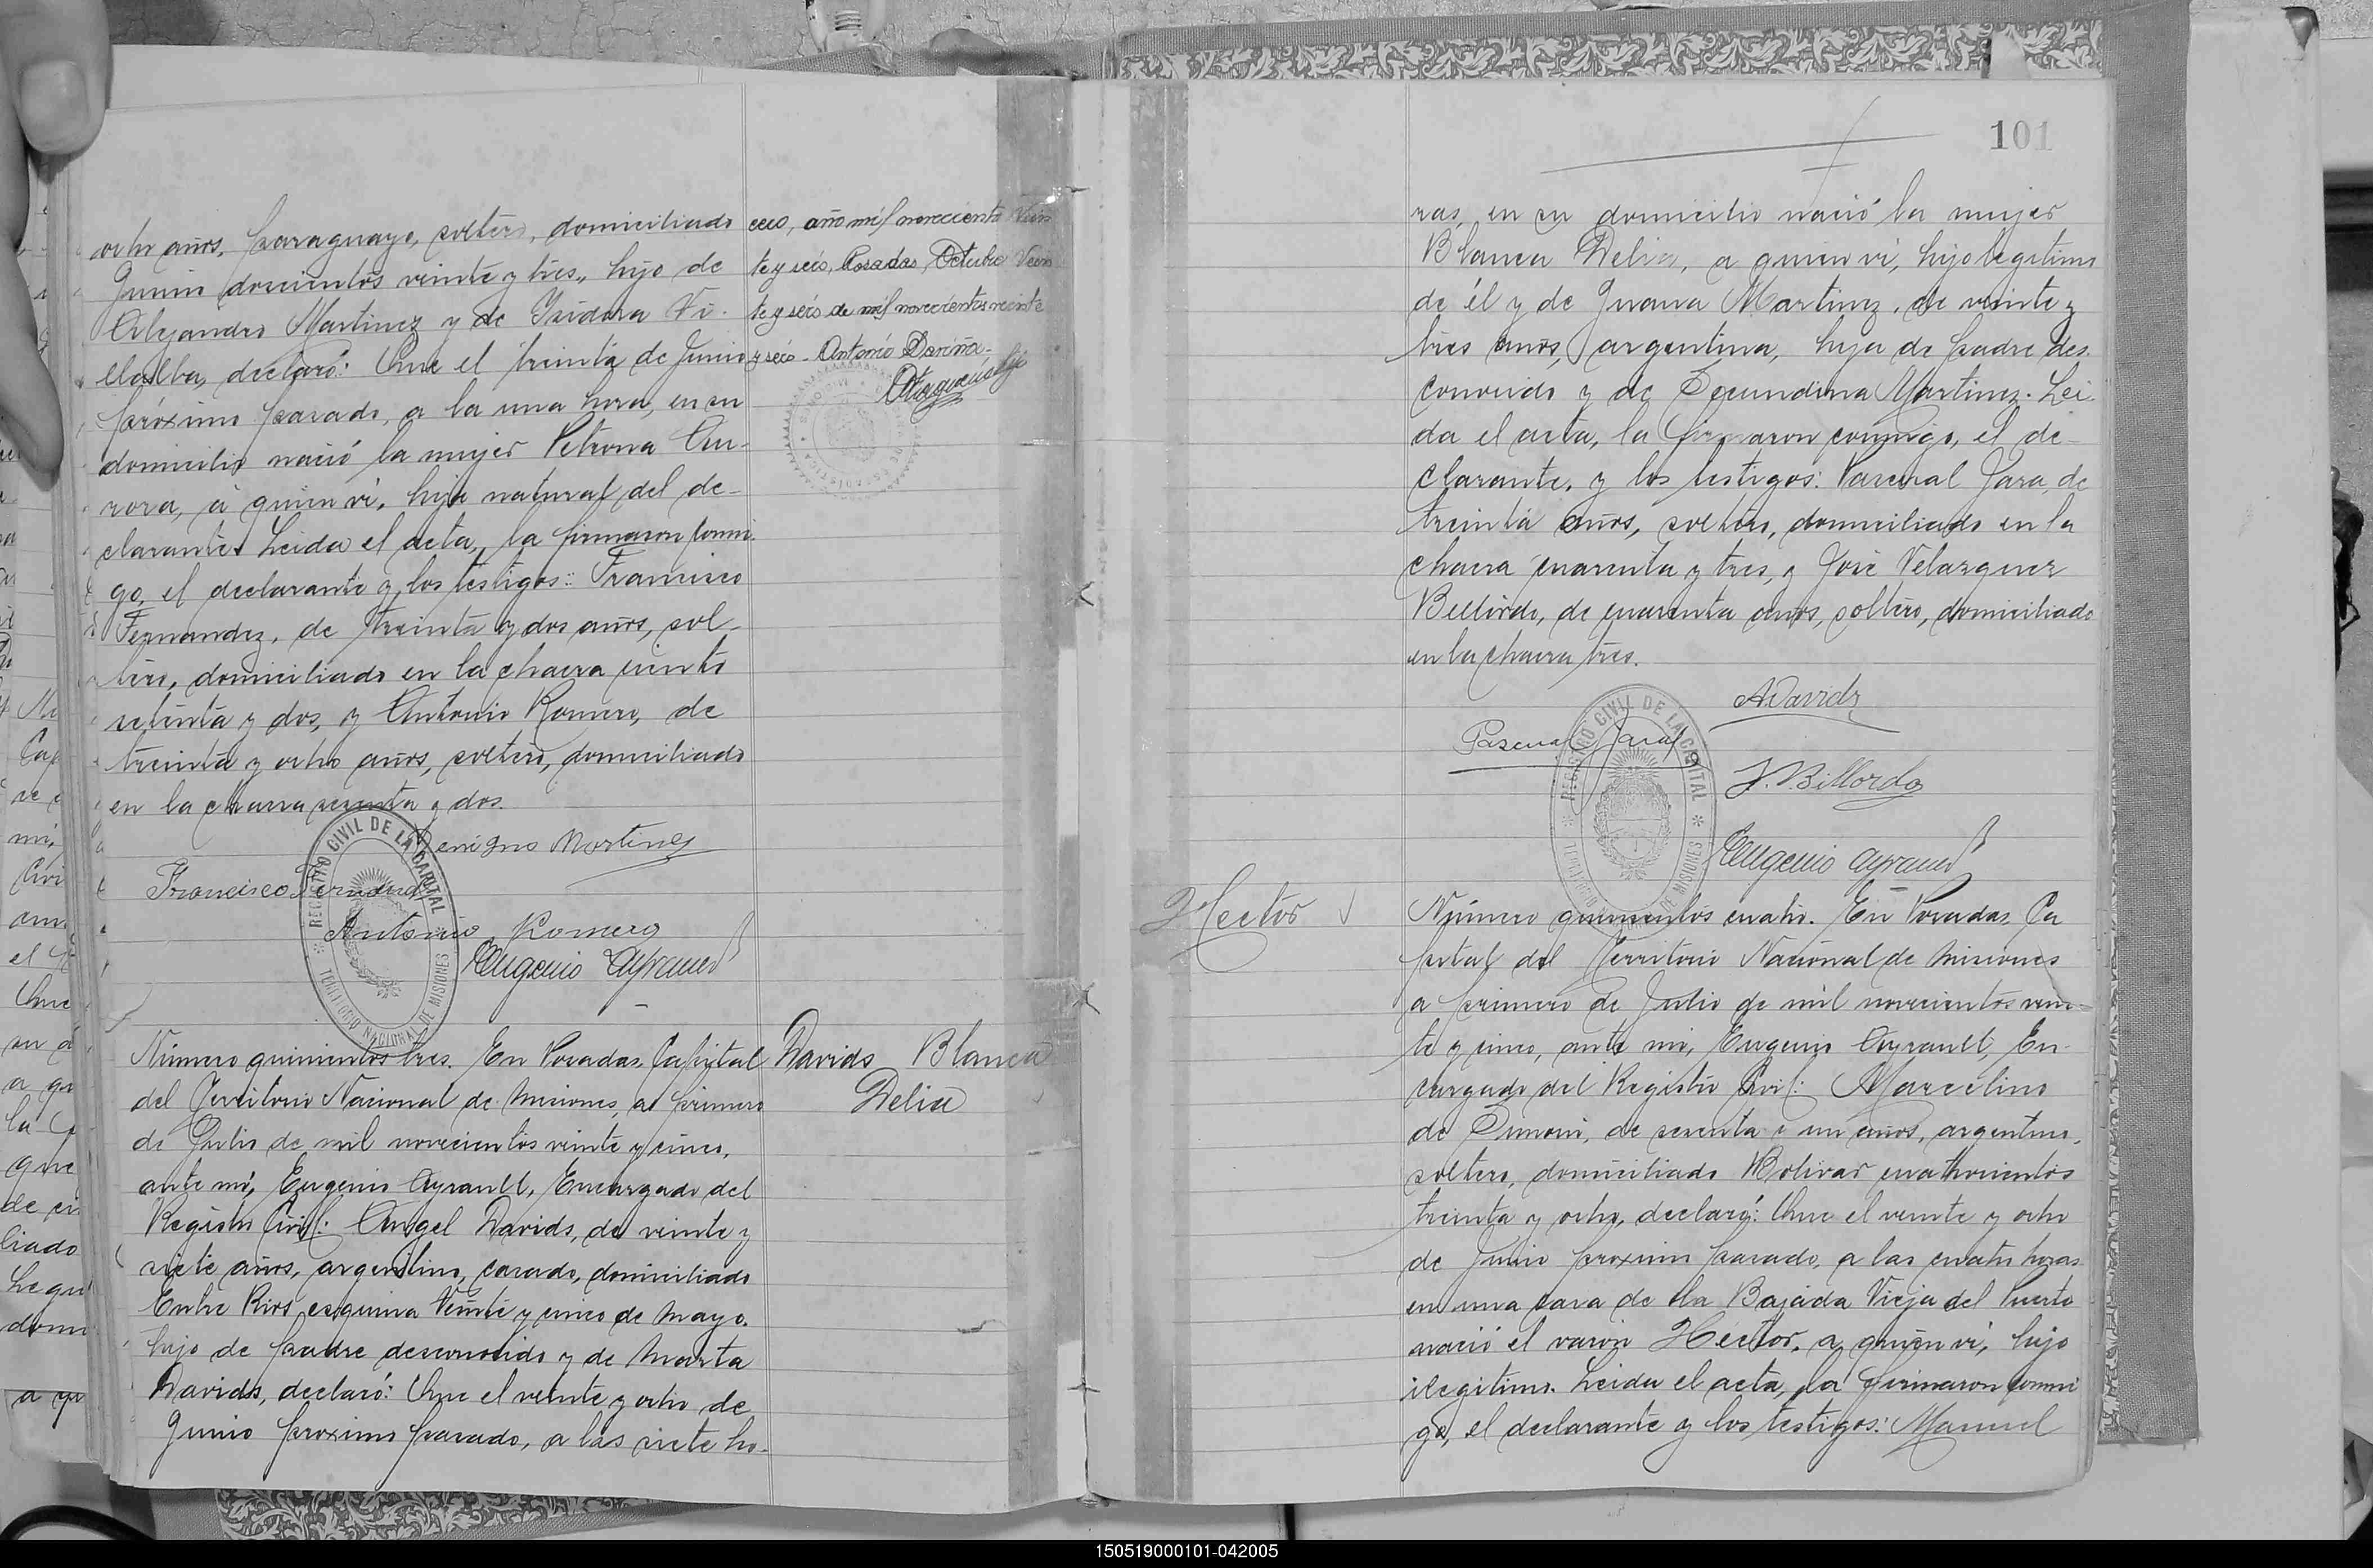 ocho años, paraguayo, soltero, domiciliado
Junin doscientos veinte y tres, hijo de
Alejandro Martinez y de Ysidora Vi-
llalba, declaró: Que el treinta de Junio
próximo pasado, a la una hora, en su
domicilio nació la mujer Petrona Au-
rora, a quien ví, hija natural del de-
clarante. Leida el acta, la firmaron conmi-
go, el declarante y los testigos: Francisco
Fernandez, de treinta y dos años, sol-
tero, domiciliado en la chacra ciento
setenta y dos, y Antonio Romero, de
treinta y ocho años, soltero, domiciliado
en la chacra sesenta y dos.
Benigno Martinez
Francisco Fernandez
Antonio Romero
Eugenio Ayrault
REGISTRO CIVIL DE LA CAPITAL
TERRITORIO NACIONAL DE MISIONES
Número quinientos tres. En Posadas, Capital
del Territorio Nacional de Misiones, a primero
de Julio de mil novecientos veinte y cinco,
ante mí, Eugenio Ayrault, Encargado del
Registro Civil: Angel Davids, de veinte y
siete años, argentino, casado, domiciliado
Entre Rios esquina Veinte y cinco de Mayo,
hijo de padre desconocido y de Marta
Davids, declaró: Que el veinte y ocho de
Junio proximo pasado, a las siete ho-
ceso, año mil novecientos Vein
te y seis, Posadas, Octubre Vein
te y seis de mil novecientos veinte
y seis - Antonio
Davids Blanca
Delia
101
ras, en su domicilio nació la mujer
Blanca Delia, a quien ví, hijo legitimo
de él y de Juana Martinez, de veinte y
tres años, argentina, hija de padre des-
conocido y de Secundina Martinez. Lei-
da el acta, la firmaron conmigo, el de-
clarante, y los testigos: Pascual Jara, de
treinta años, soltero, domiciliado en la
chacra cuarenta y tres, y José Velazquez
Billordo, de cuarenta años, soltero, domiciliado
en la chacra tres.
A Davids
Pascual Jara
J. V. Billordo
Eugenio Ayrault
REGISTRO CIVIL DE LA CAPITAL
TERRITORIO NACIONAL DE MISIONES
Hector
Número quinientos cuatro. En Posadas, Ca
pital del Territorio Nacional de Misiones
a primero de Julio de mil novecientos vein-
te y cinco, ante mi, Eugenio Ayrault, En-
cargado del Registro Civil: Marcelino
de Simoni, de sesenta y un años, argentino,
soltero, domiciliado Bolivar cuatrocientos
treinta y ocho, declaró: Que el veinte y ocho
de Junio proximo pasado, a las cuatro horas
en una casa de la Bajada Vieja del Puerto
nació el varon Hector, a quien ví, hijo
ilegitimo. Leida el acta, la firmaron conmi
go, el declarante y los testigos: Manuel
150519000101-042005